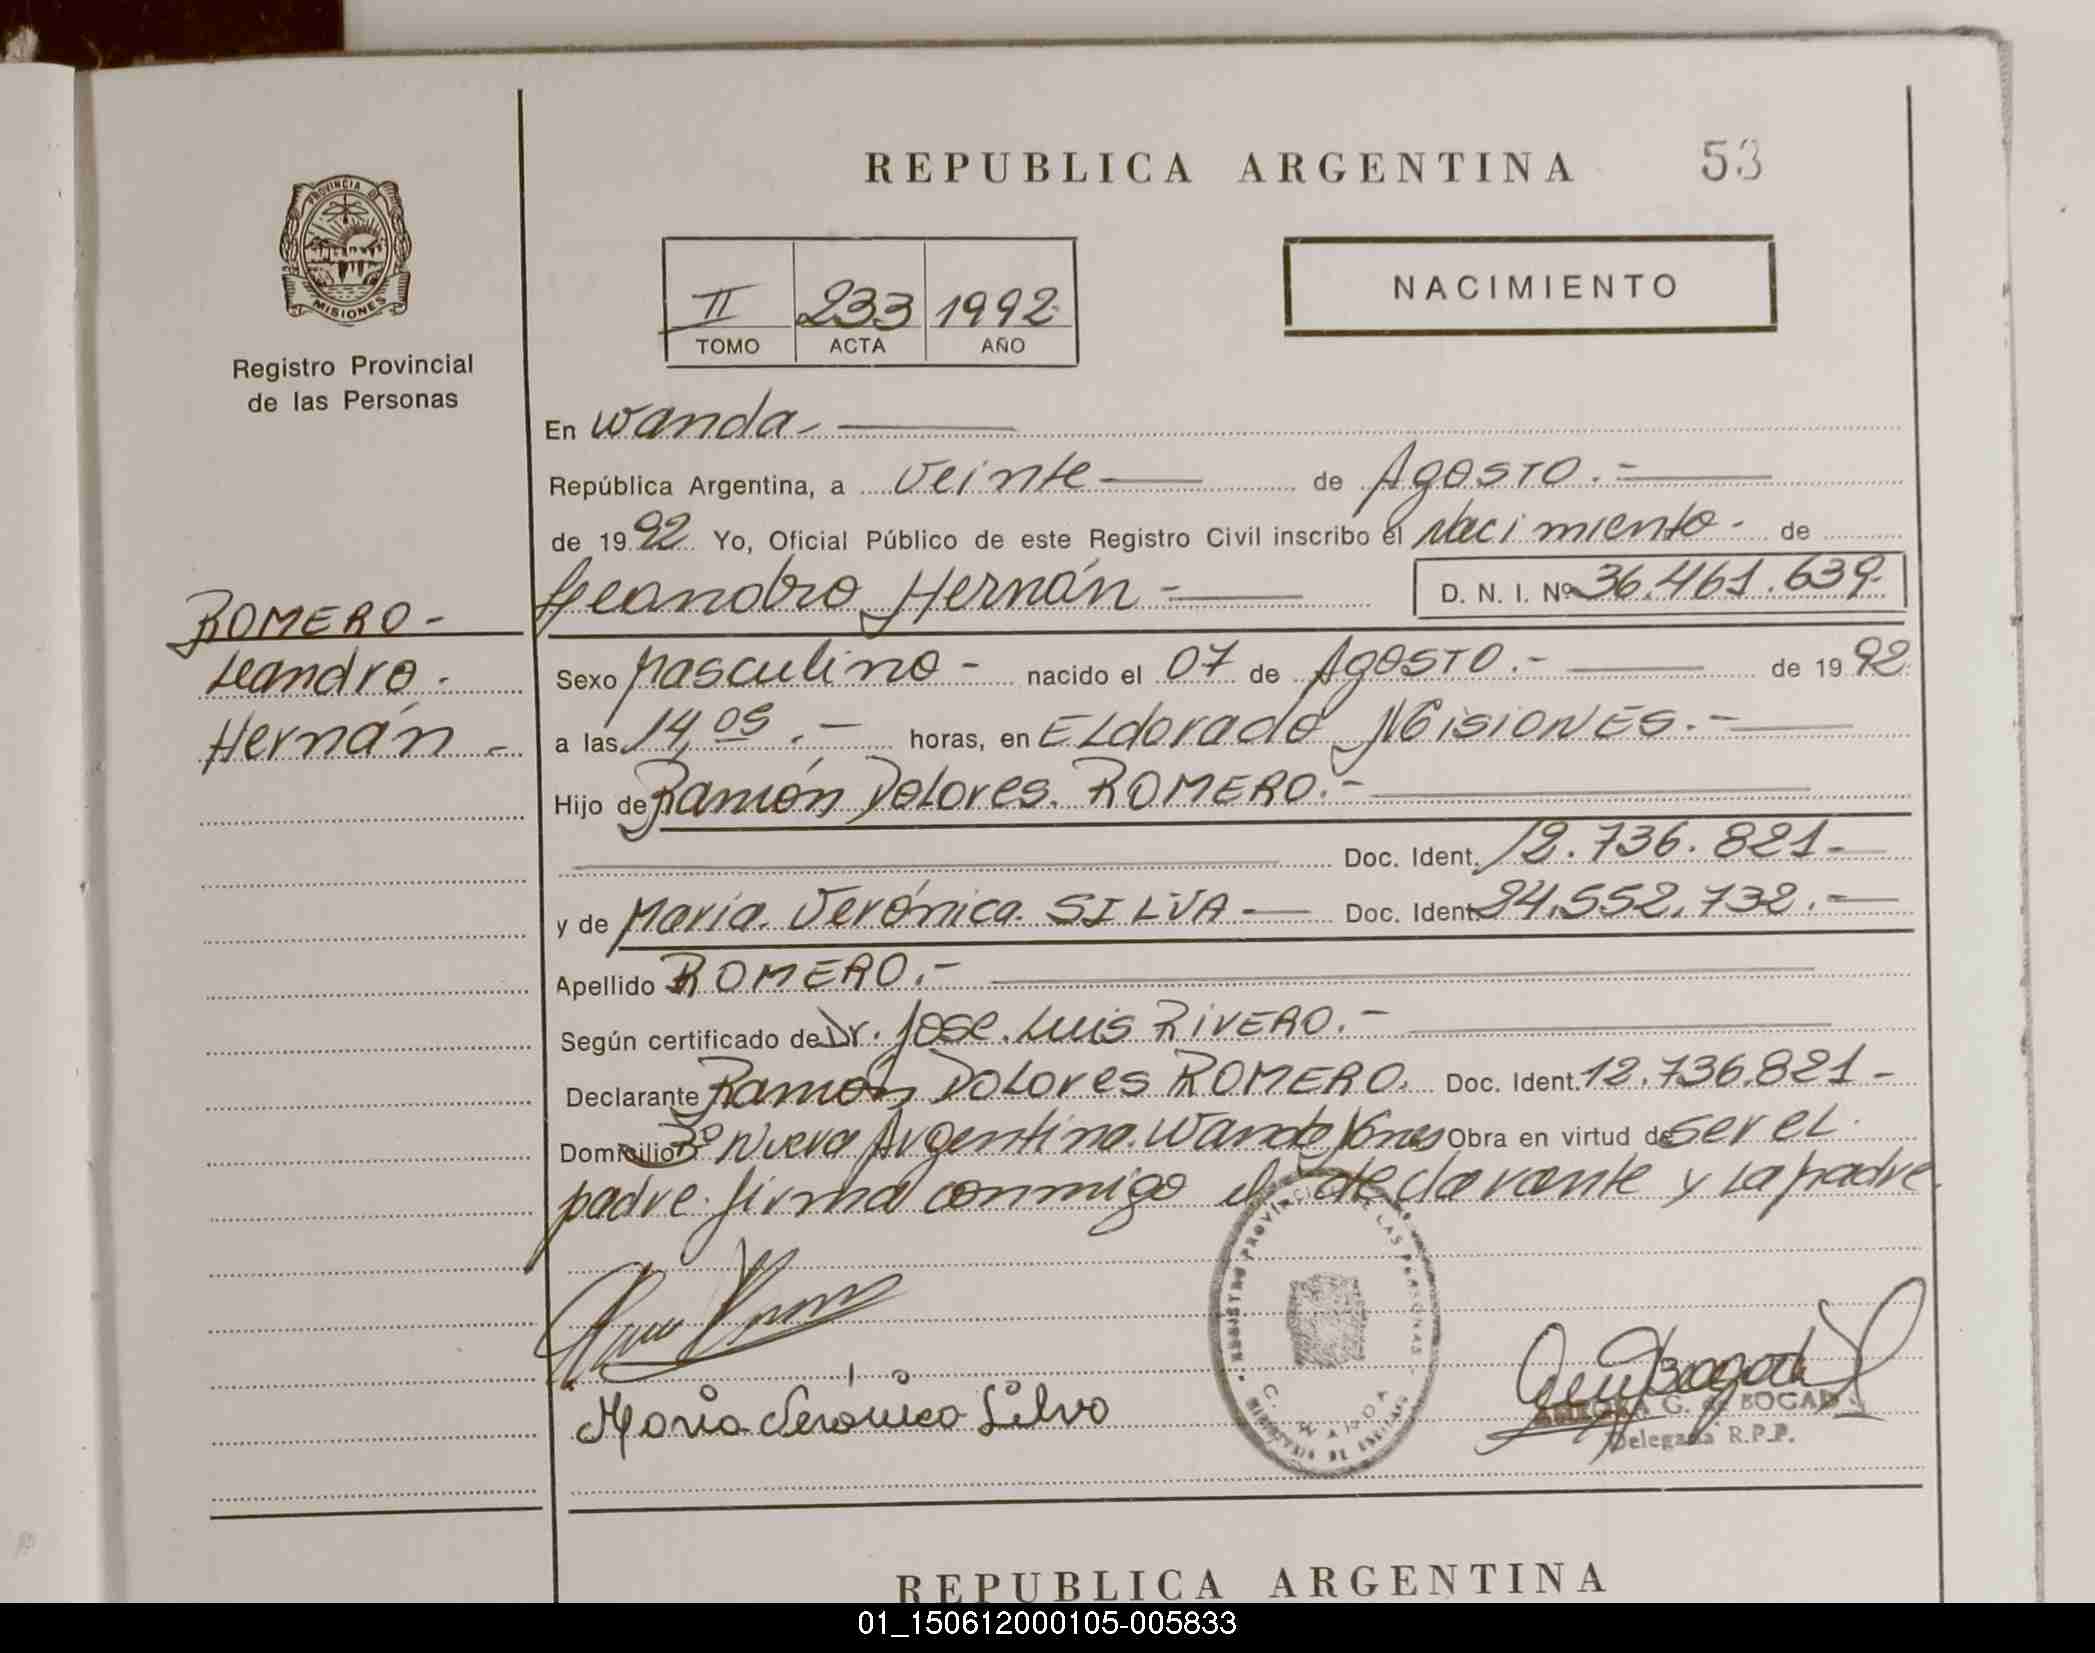 REPUBLICA ARGENTINA 53
PROVINCIA DE
MISIONES
Registro Provincial
de las Personas
II 233 1992
TOMO ACTA AÑO
NACIMIENTO
En Wanda.-
República Argentina, a Veinte de Agosto.-
de 1992 Yo, Oficial Público de este Registro Civil inscribo el Nacimiento.- de
Leandro Hernán.- D. N. I. Nº 36.461.639.-
ROMERO-
Leandro.
Hernán-
Sexo Masculino- nacido el 07 de Agosto.- de 1992
a las 14,05.- horas, en Eldorado Misiones.-
Hijo de Ramón Dolores ROMERO.-
Doc. Ident. 12.736.821-
y de María Verónica SILVA- Doc. Ident. 24.552.732.-
Apellido ROMERO.-
Según certificado de Dr. Jose Luis RIVERO.-
Declarante Ramón Dolores ROMERO. Doc. Ident. 12.736.821-
Domicilio Bº Nueva Argentina. Wanda Mnes Obra en virtud de ser el
padre. firma conmigo el declarante y la madre.
REGISTRO PROVINCIAL DE LAS PERSONAS
WANDA
María Verónica Silva
G. de BOGADO
Delegada R.P.P.
REPUBLICA ARGENTINA
01_150612000105-005833